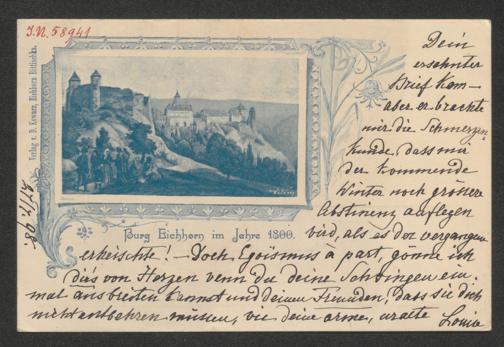 J.N. 58941
Verlag v. D. Kowarz, Eichhorn Bittischka.
Burg Eichhorn im Jahre 1800.
Dein
ersehnter
Brief kam –
aber er brachte
mir die Schmerzen
kunde, dass mir
der kommende
Winter noch grösere
Abstinenz auflegen
wird, als es der vergangene
erheischte! – Doch Egoismus à part, gönne ich
dir's von Herzen wenn du deine Schwingen ein
mal ausbreiten kannst und deinen Freunden, dass sie dich
nicht entbehren müssen, wie deine arme, uralte Louise